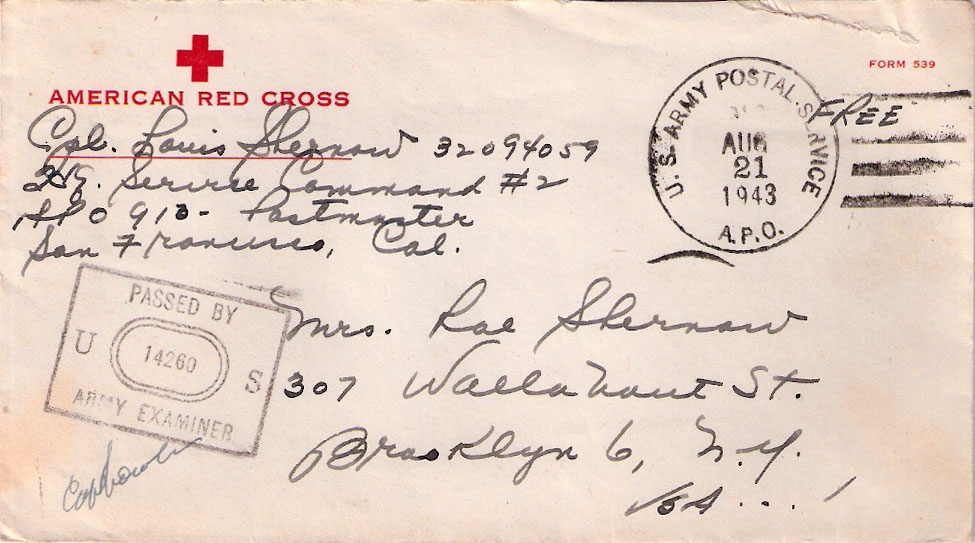 AMERICAN RED CROSS
FORM 539
Cpl. Louis Shernow 32094059
Hq. Service Command #2
APO 913- Postmaster
San Francisco, Cal.
U.S. ARMY POSTAL SERVICE
AUG
21
1943
A.P.O.
FREE
PASSED BY
U 14260 S
ARMY EXAMINER
Mrs. Rae Shernow
307 St.
Brooklyn 6, N.Y.
USA...!